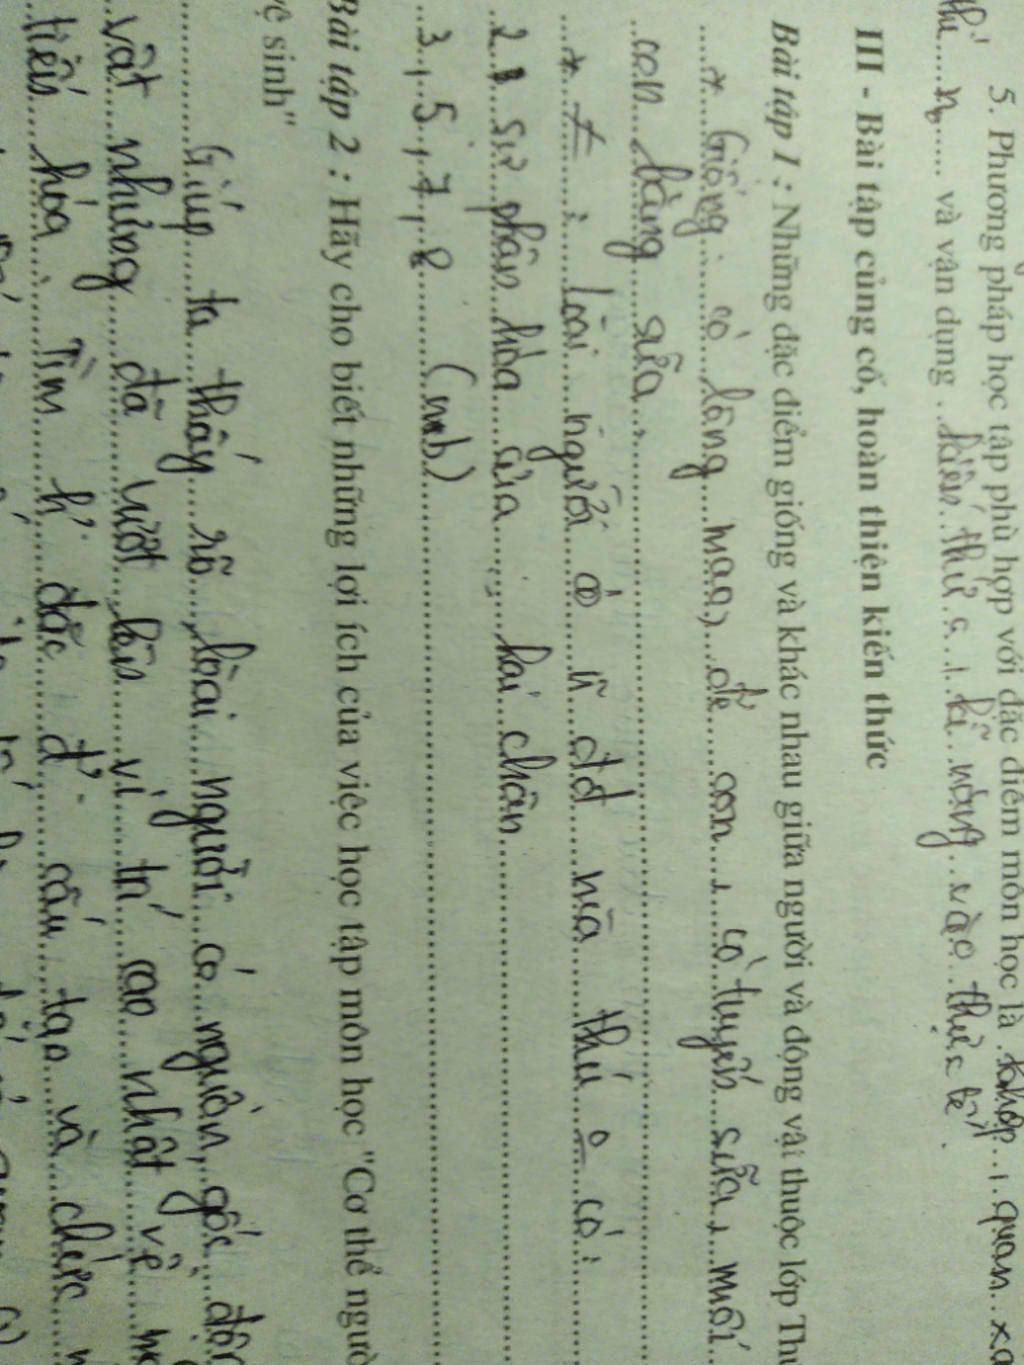 5. Phương pháp học tập phù hợp với đặc điểm môn học là khớp, quan
và vận dụng kiến thức, kĩ năng vào thực tế.
III - Bài tập củng cố, hoàn thiện kiến thức
Bài tập 1 : Những đặc điểm giống và khác nhau giữa người và động vật thuộc lớp Th
* Giống : có lông mao, đẻ con, có tuyến sữa,
con bằng sữa.
* ≠ : loài người có đđ mà thú o có :
2. sự phân hóa của hai chân
3, 5, 7, 8 (mb)
Bài tập 2 : Hãy cho biết những lợi ích của việc học tập môn học "Cơ thể ngườ
vệ sinh"
Giúp ta thấy rõ loài người có nguồn gốc độn
vật nhưng đã vượt lên vị trí cao nhất về
tiến hóa. Tìm đặc đ' cấu tạo và chức